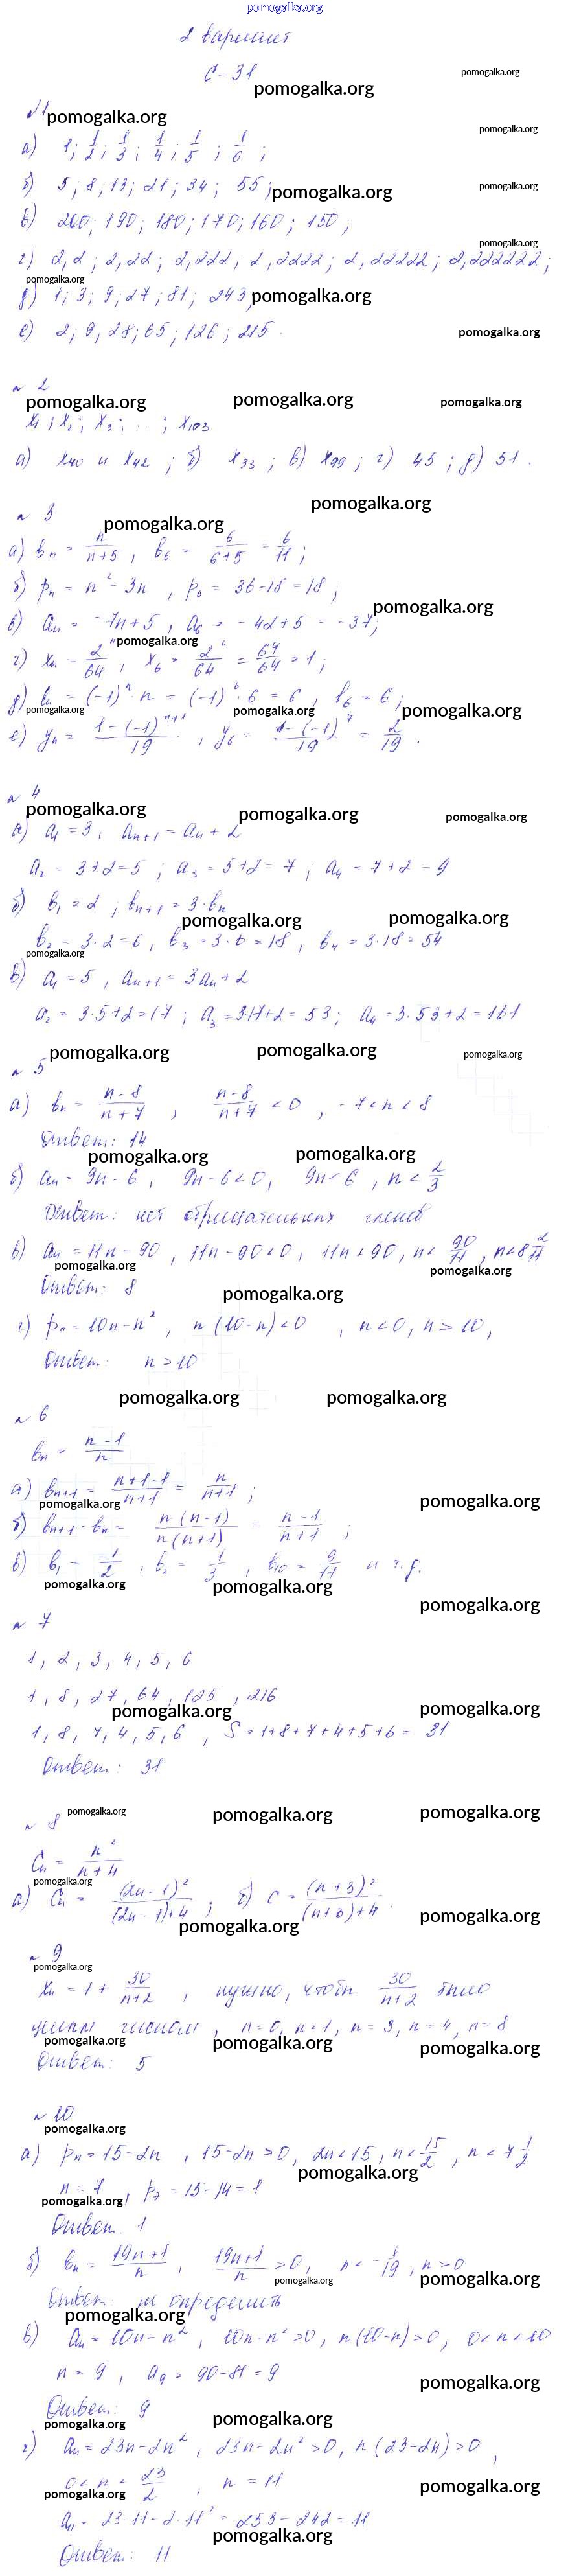 pomogalka.org
2 вариант
С-31
pomogalka.org
pomogalka.org
№1 pomogalka.org
pomogalka.org
а) 1; 1/2; 1/3; 1/4; 1/5; 1/6;
б) 5; 8; 13; 21; 34; 55; pomogalka.org pomogalka.org
в) 200; 190; 180; 170; 160; 150;
pomogalka.org
г) 2,2; 2,22; 2,222; 2,2222; 2,22222; 2,222222;
pomogalka.org
д) 1; 3; 9; 27; 81; 243; pomogalka.org
е) 2; 9, 28; 65; 126; 215. pomogalka.org
№ 2
pomogalka.org pomogalka.org pomogalka.org
x₁; x₂; x₃; ...; x₁₀₃
а) x₄₀ и x₄₂; б) x₃₃; в) x₉₉; г) 45; д) 51.
№ 3 pomogalka.org
pomogalka.org
а) bₙ = n/(n+5), b₆ = 6/(6+5) = 6/11;
б) pₙ = n² - 3n, p₆ = 36-18 = 18;
pomogalka.org
в) aₙ = -7n+5, a₆ = -42+5 = -37;
pomogalka.org
г) xₙ = 2ⁿ/64, x₆ = 2⁶/64 = 64/64 = 1;
д) bₙ = (-1)ⁿ · n = (-1)⁶ · 6 = 6, b₆ = 6;
pomogalka.org pomogalka.org pomogalka.org
е) yₙ = (1-(-1)ⁿ⁺¹)/19, y₆ = (1-(-1)⁷)/19 = 2/19.
№ 4
pomogalka.org pomogalka.org pomogalka.org
а) a₁ = 3, aₙ₊₁ = aₙ + 2
a₂ = 3+2 = 5; a₃ = 5+2 = 7; a₄ = 7+2 = 9
б) b₁ = 2; bₙ₊₁ = 3·bₙ
pomogalka.org pomogalka.org
b₂ = 3·2 = 6, b₃ = 3·6 = 18, b₄ = 3·18 = 54
pomogalka.org
в) a₁ = 5, aₙ₊₁ = 3aₙ+2
a₂ = 3·5+2 = 17; a₃ = 3·17+2 = 53; a₄ = 3·53+2 = 161
pomogalka.org pomogalka.org pomogalka.org
№ 5
а) bₙ = (n-8)/(n+7), (n-8)/(n+7) < 0, -7 < n < 8
Ответ: 14
pomogalka.org pomogalka.org
б) aₙ = 9n-6, 9n-6<0, 9n<6, n < 2/3
Ответ: нет отрицательных членов
в) aₙ = 11n-90, 11n-90<0, 11n<90, n < 90/11, n<8 2/11
pomogalka.org pomogalka.org
Ответ: 8
pomogalka.org
г) pₙ = 10n-n², n(10-n)<0, n<0, n>10,
Ответ: n>10
pomogalka.org pomogalka.org
№ 6
bₙ = (n-1)/n
а) bₙ₊₁ = (n+1-1)/(n+1) = n/(n+1);
pomogalka.org pomogalka.org
б) bₙ₊₁·bₙ = n(n-1)/n(n+1) = (n-1)/(n+1);
в) b₁ = -1/2, b₂ = 1/3, b₁₀ = 9/11 и т.д.
pomogalka.org pomogalka.org
pomogalka.org
№ 7
1, 2, 3, 4, 5, 6
1, 8, 27, 64, 125, 216
pomogalka.org pomogalka.org
1, 8, 7, 4, 5, 6, S = 1+8+7+4+5+6 = 31
Ответ: 31
№ 8 pomogalka.org pomogalka.org pomogalka.org
Cₙ = n²/(n+4)
pomogalka.org
а) Cₙ = (2n-1)²/((2n-1)+4); б) C = (n+3)²/((n+3)+4).
pomogalka.org pomogalka.org
№ 9
pomogalka.org
xₙ = 1 + 30/(n+2), нужно, чтобы 30/(n+2) было
целым числом, n=0, n=1, n=3, n=4, n=8
pomogalka.org pomogalka.org pomogalka.org
Ответ: 5
№ 10
pomogalka.org
а) pₙ = 15-2n, 15-2n>0, 2n<15, n<15/2, n<7 1/2
pomogalka.org
n = 7, p₇ = 15-14 = 1
pomogalka.org
Ответ. 1
б) bₙ = (19n+1)/n, (19n+1)/n > 0, n < -1/19, n>0
pomogalka.org pomogalka.org
Ответ: не определить
pomogalka.org
в) aₙ = 10n-n², 10n-n²>0, n(10-n)>0, 0<n<10
n = 9, a₉ = 90-81 = 9
pomogalka.org
Ответ: 9
pomogalka.org pomogalka.org
г) aₙ = 23n-2n², 23n-2n²>0, n(23-2n)>0,
0 < n < 23/2, n = 11
pomogalka.org pomogalka.org
a₁₁ = 23·11-2·11² = 253-242 = 11
pomogalka.org
Ответ: 11